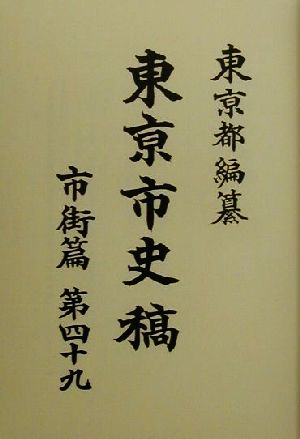 東京都編纂
東京市史稿
市街篇 第四十九